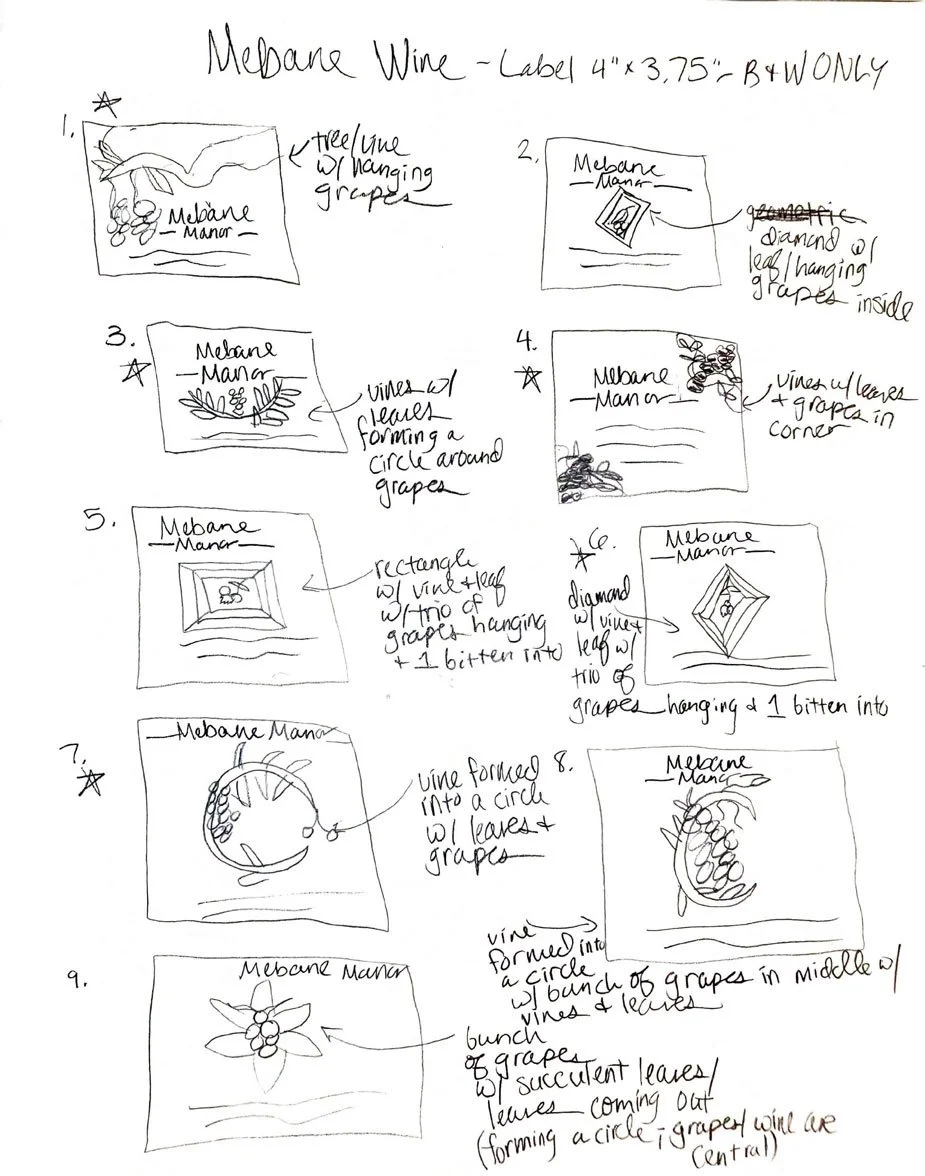 Mebane Wine - Label 4" x 3.75" - B+W ONLY
1.
tree/vine
w/ hanging
grapes
Mebane
Manor
2.
Mebane
Manor
geometric
diamond w/
leaf/hanging
grapes inside
3.
Mebane
Manor
vines w/
leaves
forming a
circle around
grapes
4.
Mebane
Manor
vines w/ leaves
+ grapes in
corner
5.
Mebane
Manor
rectangle
w/ vine + leaf
w/ trio of
grapes hanging
+ 1 bitten into
6.
Mebane
Manor
diamond
w/ vine +
leaf w/
trio of
grapes hanging + 1 bitten into
7.
Mebane Manor
vine formed
into a circle
w/ leaves +
grapes
8.
Mebane
Manor
vine
formed into
a circle
w/ bunch of grapes in middle w/
vines & leaves
9.
Mebane Manor
bunch
of grapes
w/ succulent leaves/
leaves coming out
(forming a circle; grapes/wine are
central)